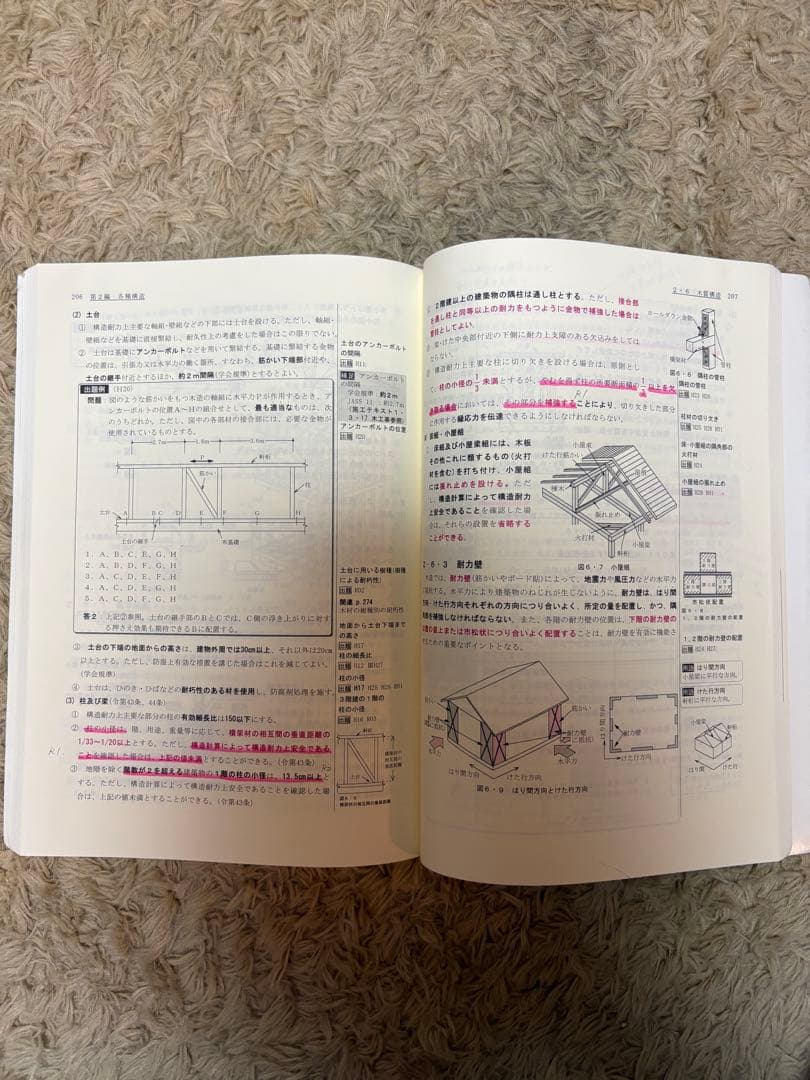 206 第2編・各種構造
(2) 土台
① 構造耐力上主要な軸組・壁組などの下部には土台を設ける。ただし、軸組・
壁組などを基礎に直接緊結し、耐久性上の考慮をした場合はこの限りでない。
② 土台は基礎にアンカーボルトなどを用いて緊結する。基礎に緊結する金物
の位置は、引張力又は水平力の働く箇所、すなわち、筋かい下端部付近や、
土台の継手付近とするほか、約2m間隔(学会規準)とするとよい。
出題例 (H20)
問題:図のような筋かいをもつ木造の軸組に水平力Pが作用するとき、ア
ンカーボルトの位置A~Hの組合せとして、最も適当なものは、次
のうちどれか。ただし、図中の各部材の接合部には、必要な金物が
使用されているものとする。
2.7m 1.8m 3.6m
P
軒桁
筋かい
柱
土台 A B C D E F G H
土台の継手 布基礎
1. A、B、C、E、G、H
2. A、B、D、F、G、H
3. A、C、D、E、F、H
4. A、C、D、E、G、H
5. A、C、D、F、G、H
答2 上記②参照。土台の継手部のBとCでは、C側の浮き上がりに対す
る押さえ効果も期待できるBに配置する。
③ 土台の下端の地面からの高さは、建物外周では30cm以上、それ以外は20cm
以上とする。ただし、防湿上有効な措置を講じた場合はこれを減じてよい。
(学会規準)
④ 土台は、ひのき・ひばなどの耐朽性のある材を使用し、防腐剤処理を施す。
(3) 柱及び梁(令第43条、44条)
① 構造耐力上主要な部分の柱の有効細長比は150以下にする。
② 柱の小径は、階、用途、重量等に応じて、横架材の相互間の垂直距離の
1/33~1/20以上とする。ただし、構造計算によって構造耐力上安全である
R1.
ことを確認した場合は、上記の値未満とすることができる。(令第43条)
③ 地階を除く階数が2を超える建築物の1階の柱の小径は、13.5cm以上と
する。ただし、構造計算によって構造耐力上安全であることを確認した場
合は、上記の値未満とすることができる。(令第43条)
土台のアンカーボルト
の間隔
出題 H11
補足 アンカーボルト
の間隔
学会規準:約2m
JASS 11:約2.7m
(施工テキスト1・
3・17 木工事参照)
アンカーボルトの位置
出題 H20
土台に用いる樹種(樹種
による耐朽性)
出題 H02
関連 p.274
木材の樹種別の耐朽性
地面から土台下端まで
の高さ
出題 H17
柱の細長比
出題 H12
柱の小径
出題 H17
3階建の1階の
柱の小径
出題 H16 H03
2・6 木質構造 207
2階建以上の建築物の隅柱は通し柱とする。ただし、接合部
を通し柱と同等以上の耐力をもつように金物で補強した場合は
管柱としてよい。
梁・けた中央部付近の下側に耐力上支障のある欠込みをしてはな
らない。
構造耐力上主要な柱に切り欠きを設ける場合は、原則とし
て、柱の小径の1/3未満とするが、やむを得ず柱の所要断面積の1/3以上を欠
き取る場合においては、その部分を補強することにより、切り欠きした部分
R1
に作用する縁応力を伝達できるようにしなければならない。
床組・小屋組
床組及び小屋梁組には、木板
その他これに類するもの(火打
材を含む)を打ち付け、小屋組
には振れ止めを設ける。ただ
し、構造計算によって構造耐力
上安全であることを確認した場
合は、それらの設置を省略する
ことができる。
小屋束
けた行筋かい
棟木
振れ止め
火打材
小屋梁
軒桁
図6・7 小屋組
2・6・3 耐力壁
木造では、耐力壁(筋かいやボード貼)によって、地震力や風圧力などの水平力に
抵抗する。水平力により建築物のねじれが生じないように、耐力壁は、はり間
方向・けた行方向それぞれの方向につり合いよく、所定の量を配置し、かつ、隅
部を補強しなければならない。また、各階の耐力壁の位置は、下階の耐力壁の
位置の直上または市松状につり合いよく配置することは、耐力壁を有効に機能さ
せるための重要なポイントとなる。
筋かい
耐力壁
水平力
はり間方向
けた行方向
耐力壁
はり間方向
けた行方向
図6・9 はり間方向とけた行方向
ホールダウン金物
横架材
管柱
図6・6 隅柱の管柱
隅柱の管柱
出題 H23 H26
柱材の切り欠き
出題 H28 H01
床・小屋組の隅角部の
火打材
出題 H24
小屋組の振れ止め
出題 H28 H01
市松状配置
図6・8
1、2階の耐力壁の配置
1、2階の耐力壁の配置
出題 H24 H27
用語 はり間方向
小屋梁に平行な方向。
用語 けた行方向
軒桁に平行な方向。
小屋梁
軒桁
はり間 けた行